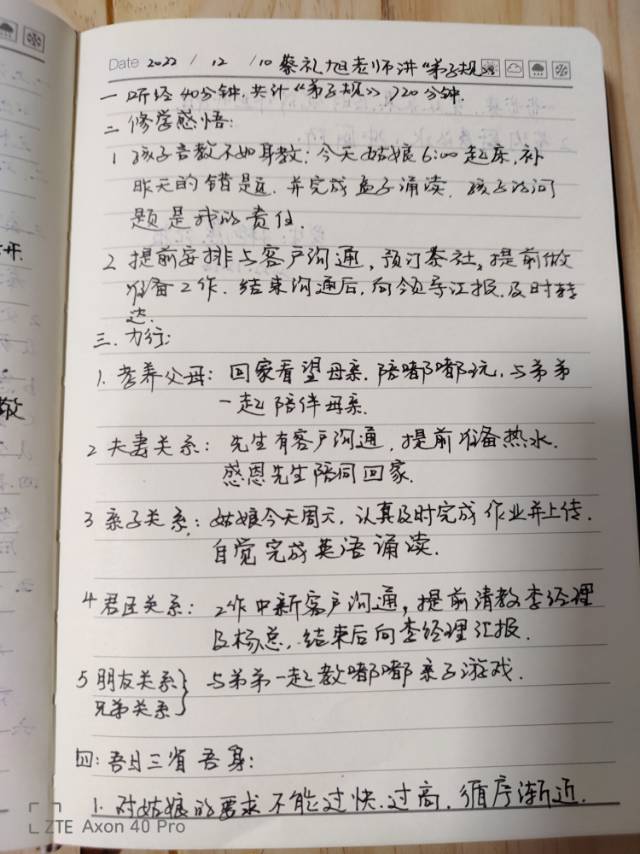 Date 2022 / 12 / 10 蔡礼旭老师讲"弟子规"
一 听经40分钟,共计《弟子规》720分钟.
二 修学感悟:
1 孩子言教不如身教:今天姑娘6:00起床,补
昨天的错题,并完成孟子诵读.孩子的问
题是我的责任.
2 提前安排与客户沟通,预订茶社,提前做
准备工作.结束沟通后,向领导汇报.及时转
达.
三.力行:
1.养父母:回家看望母亲.陪嘟嘟玩,与弟弟
一起陪伴母亲.
2 夫妻关系:先生有客户沟通,提前准备热水.
感恩先生陪同回家.
3 亲子关系:姑娘今天周六,认真及时完成作业并上传.
自觉完成英语诵读.
4 君臣关系:工作中新客户沟通,提前请教李经理
及杨总,结束后向李经理汇报.
5 朋友关系
兄弟关系 } 与弟弟一起教嘟嘟亲子游戏.
四:吾日三省吾身:
1.对姑娘的要求不能过快.过高,循序渐近.
ZTE Axon 40 Pro